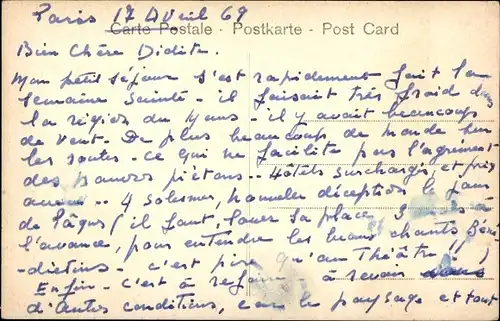 Paris 17 Avril 69
Carte Postale - Postkarte - Post Card
Bien Chère Didite.
Mon petit séjour s'est rapidement fait la
semaine Sainte - il faisait très froid dans
la région du Mans - il y avait beaucoup
de vent - De plus beaucoup de monde sur
les routes - ce qui ne facilite pas l'agrément
des pauvres piétons - Hôtels surchargés, et prix
4 Solesmes, nouvelle déception le jour
de Pâques (il faut louer sa place 3 à
l'avance, pour entendre les beaux chants Béné
-dictins - c'est pire qu'au Théâtre!!)
Enfin - c'est à refaire à revoir dans
d'autres conditions, car le paysage et tout